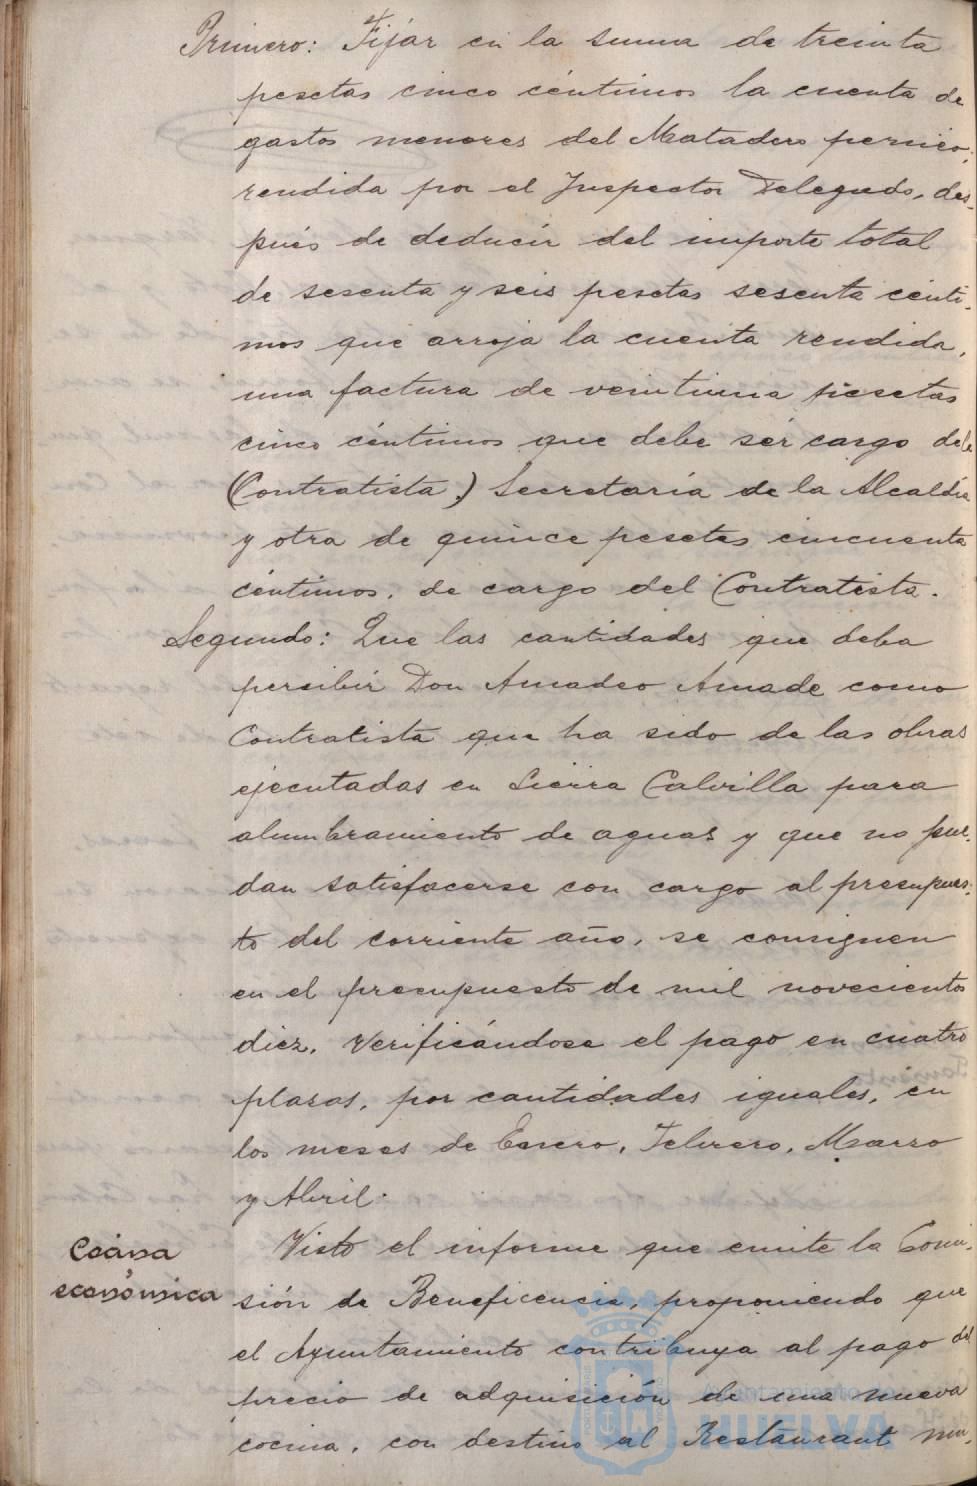 Primero: Fijár en la suma de treinta
pesetas cinco céntimos la cuenta de
gastos menores del Matadero pernico,
rendida por el Inspector Delegado, des-
pués de deducir del importe total
de sesenta y seis pesetas sesenta cénti-
mos que arroja la cuenta rendida,
una factura de veintiuna pesetas
cinco céntimos que debe sér cargo de la
(Contratista.) Secretaría de la Alcaldía
y otra de quince pesetas cincuenta
céntimos, de cargo del Contratista.
Segundo: Que las cantidades que deba
persibir Don Amadeo Amade como
Contratista que ha sido de las obras
ejecutadas en Sierra Calvilla para
alumbramiento de aguas y que no pue-
dan satisfacerse con cargo al presupues-
to del corriente año, se consignen
en el presupuesto de mil novecientos
diez, verificándose el pago en cuatro
plazos, por cantidades iguales, en
los meses de Enero, Febrero, Marzo
y Abril.
Cocina
económica
Visto el informe que emite la Comi-
sión de Beneficencia, proponiendo que
el Ayuntamiento contribuya al pago del
precio de adquisición de una nueva
cocina, con destino al Restaurant mu-
Ayuntamiento de
HUELVA